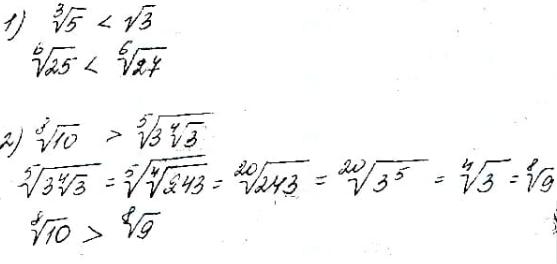 1) ∛5 < √3
⁶√25 < ⁶√27
2) ⁸√10 > ⁵√(3⁴√3)
⁵√(3⁴√3) = ⁵√(⁴√243) = ²⁰√243 = ²⁰√(3⁵) = ⁴√3 = ⁸√9
⁸√10 > ⁸√9